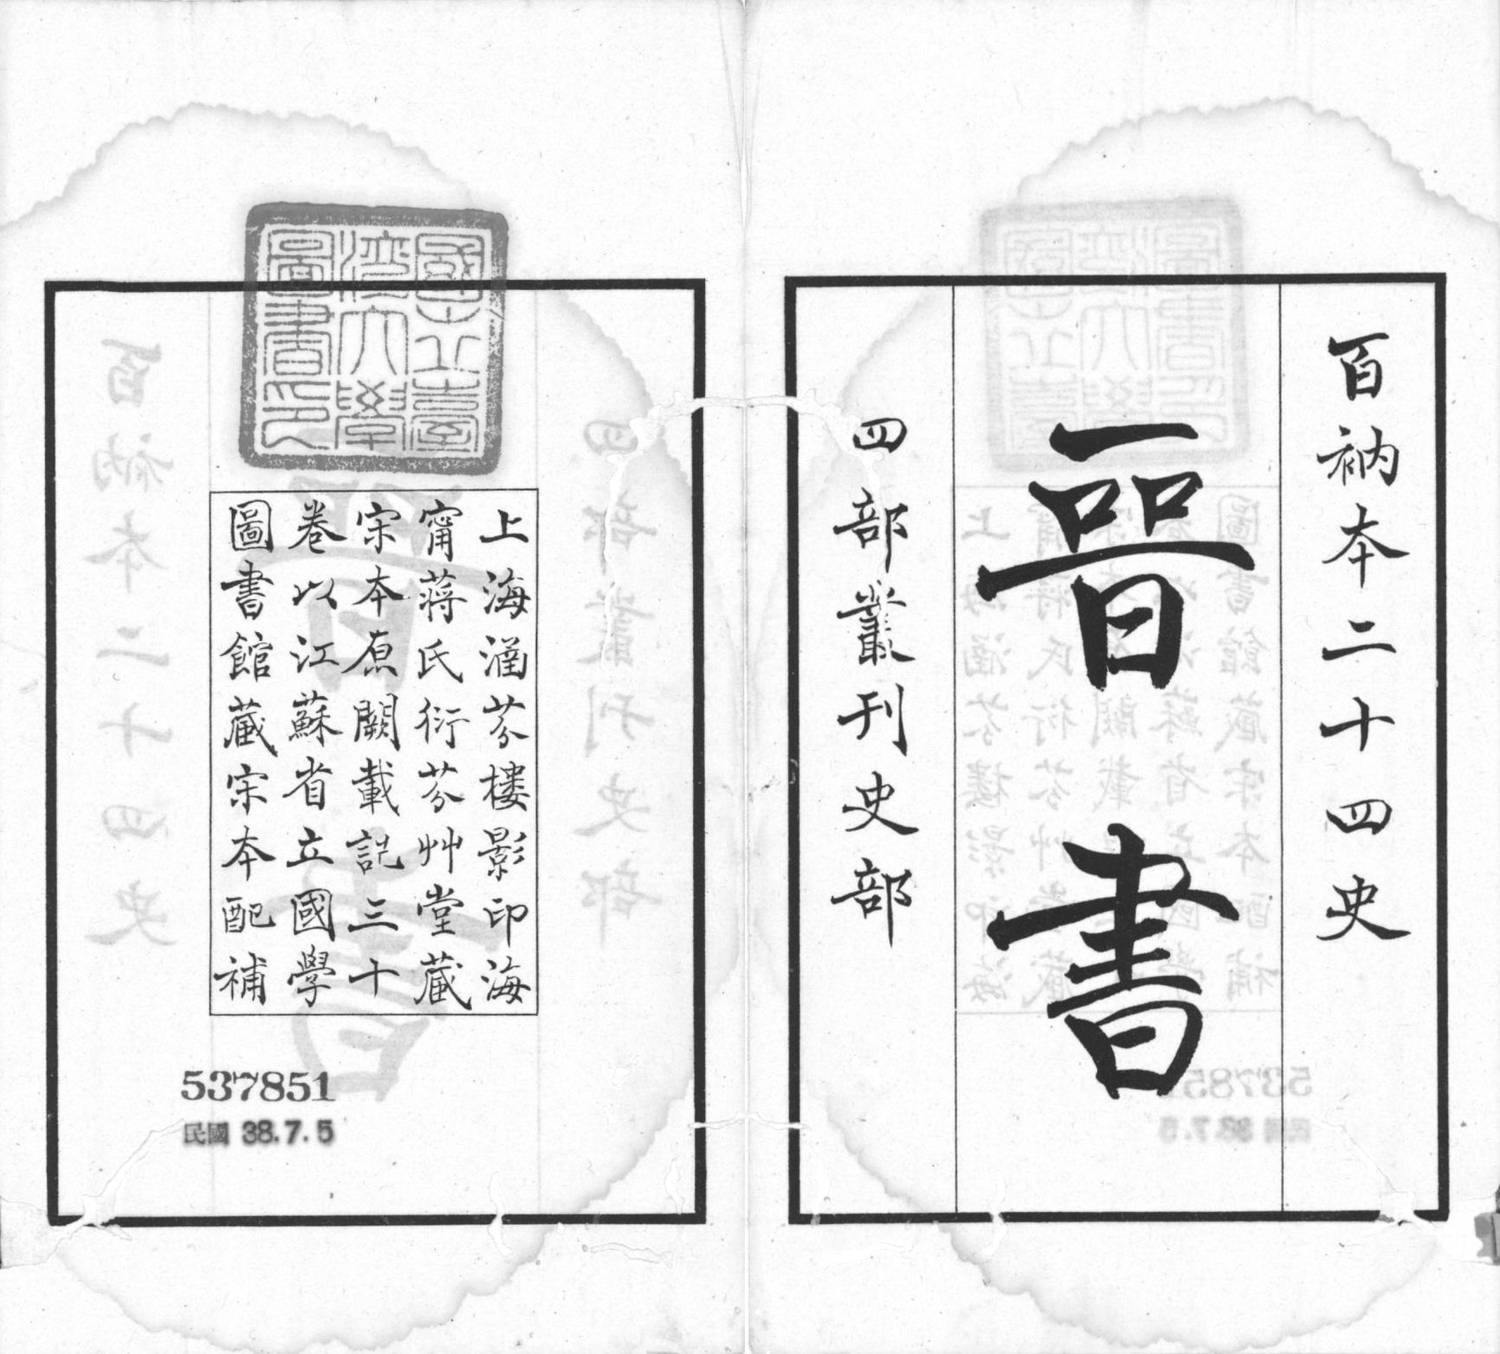 百衲本二十四史
晉書
四部叢刊史部
國立臺
灣大學
圖書印
上海涵芬樓影印海
甯蔣氏衍芬艸堂藏
宋本原闕載記三十
卷以江蘇省立國學
圖書館藏宋本配補
537851
民國 38.7.5